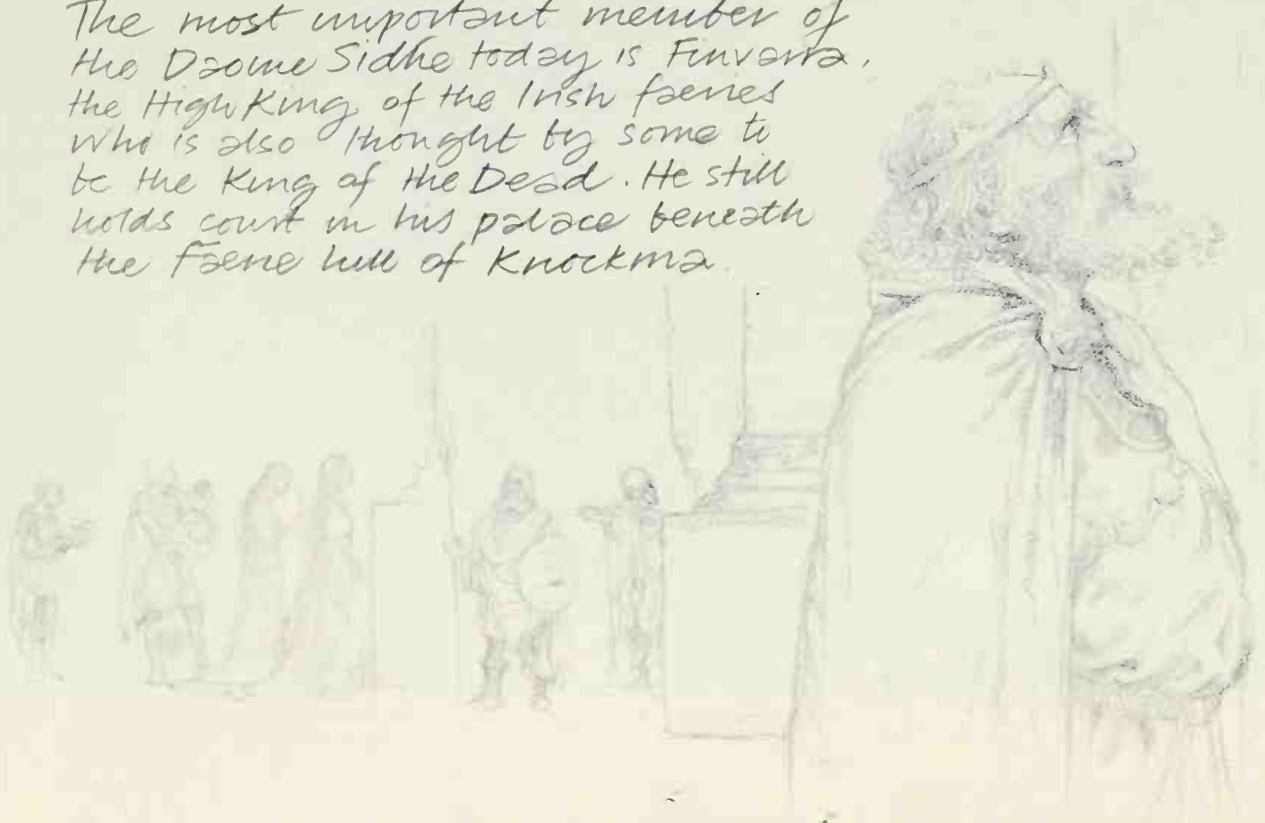 The most important member of
the Daoine Sidhe today is Finvarra,
the High King of the Irish faeries
who is also thought by some to
be the King of the Dead. He still
holds court in his palace beneath
the Faerie hill of Knockma.